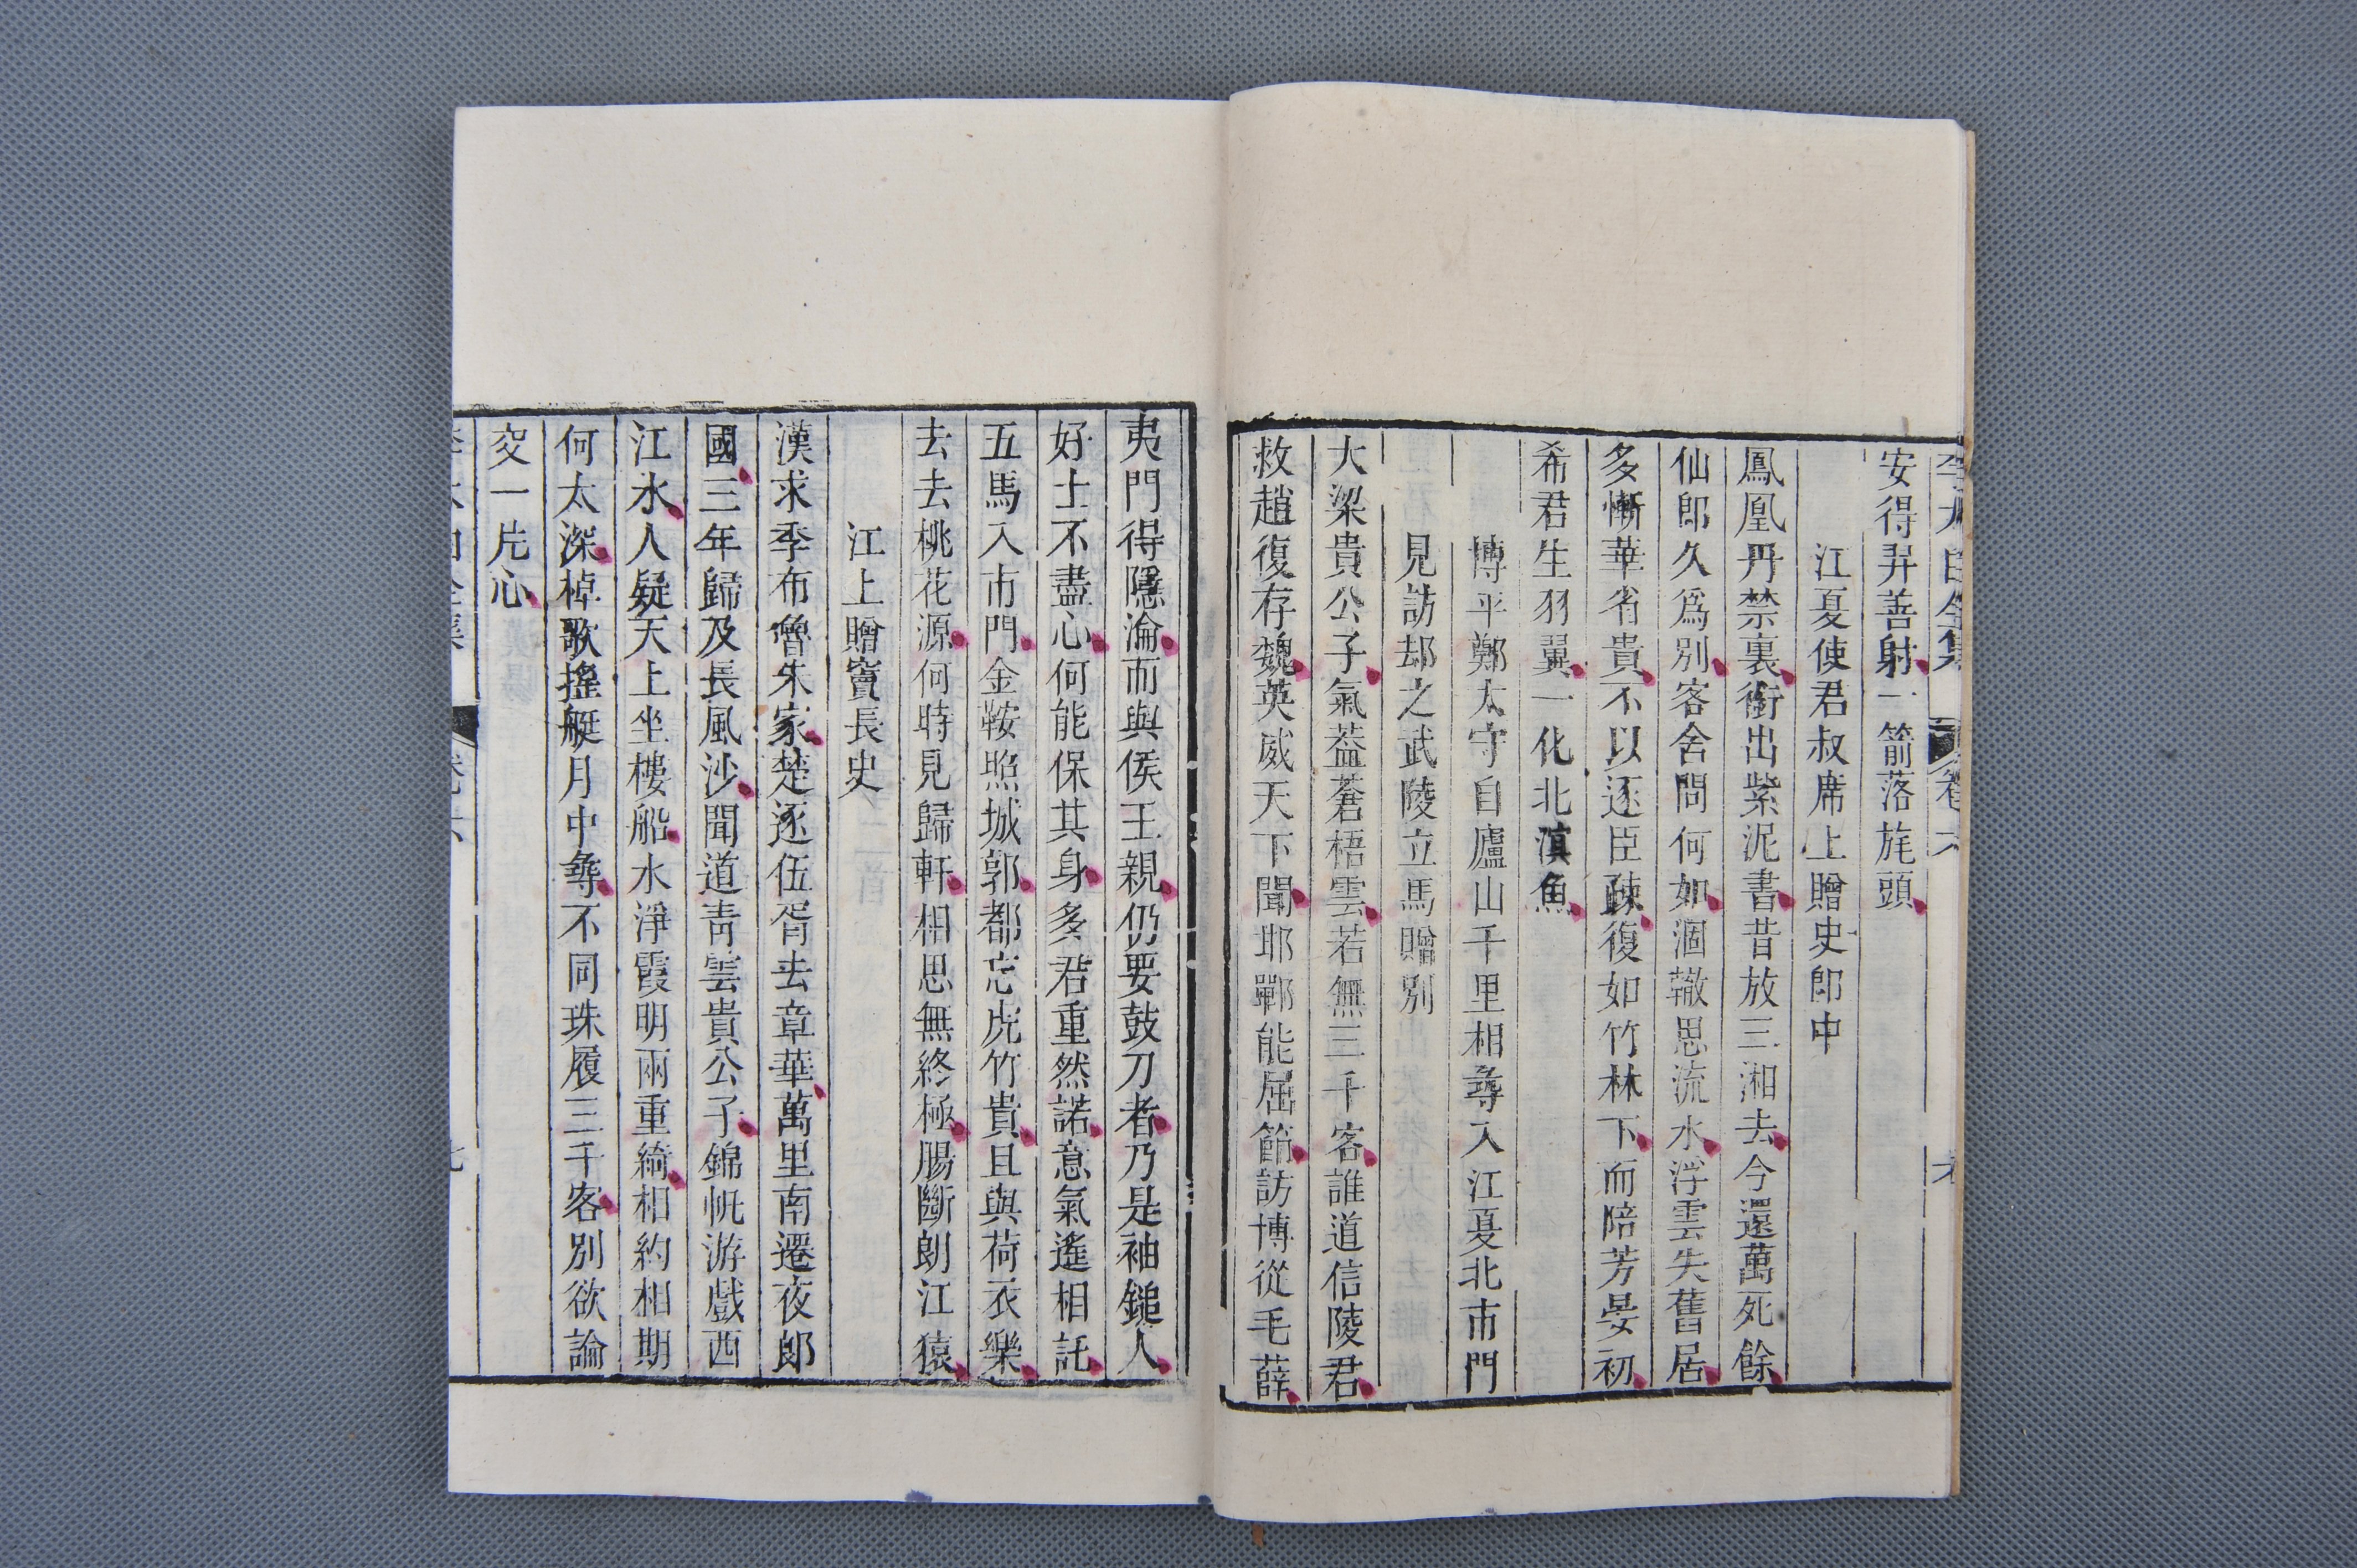 安得羿善射一箭落旄頭
江夏使君叔席上贈史郎中
鳳凰丹禁裏銜出紫泥書昔放三湘去今還萬死餘
仙郎久爲別客舍問何如涸轍思流水浮雲失舊居
多慚華省貴不以逐臣疎復如竹林下而陪芳晏初
希君生羽翼一化北溟魚
博平鄭太守自廬山千里相尋入江夏北市門
見訪却之武陵立馬贈別
大梁貴公子氣葢蒼梧雲若無三千客誰道信陵君
救趙復存魏英威天下聞邯鄲能屈節訪博從毛薛
夷門得隱淪而與侯王親仍要鼓刀者乃是袖鎚人
好士不盡心何能保其身多君重然諾意氣遙相託
五馬入市門金鞍照城郭都忘虎竹貴且與荷衣樂
去去桃花源何時見歸軒相思無終極腸斷朗江猿
江上贈竇長史
漢求季布魯朱家楚逐伍胥去章華萬里南遷夜郎
國三年歸及長風沙聞道青雲貴公子錦帆游戲西
江水人疑天上坐樓船水淨霞明兩重綺相約相期
何太深棹歌搖艇月中尋不同珠履三千客別欲論
交一片心